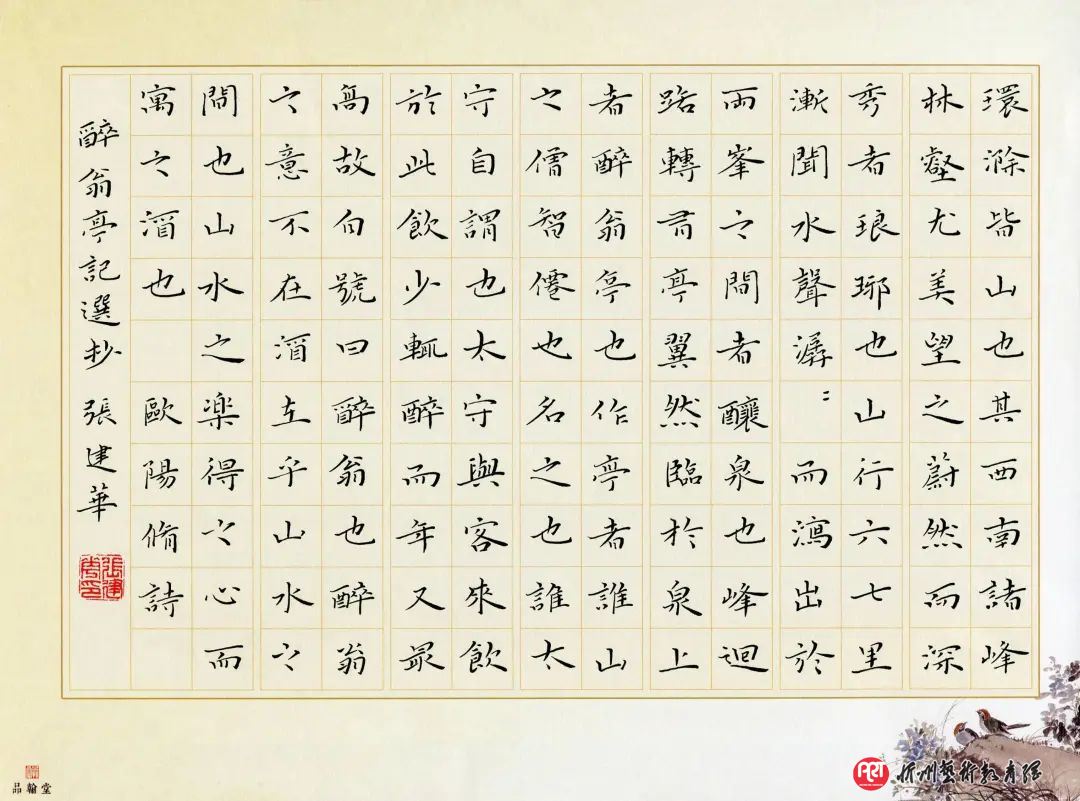 環滁皆山也其西南諸峰
林壑尤美望之蔚然而深
秀者琅琊也山行六七里
漸聞水聲潺〻而瀉出於
兩峯之間者釀泉也峰迴
路轉有亭翼然臨於泉上
者醉翁亭也作亭者誰山
之僧智僊也名之也誰太
守自謂也太守與客來飲
於此飲少輒醉而年又最
高故自號曰醉翁也醉翁
之意不在酒在乎山水之
間也山水之楽得之心而
寓之酒也 歐陽脩詩
醉翁亭記選抄 張建華
品翰堂